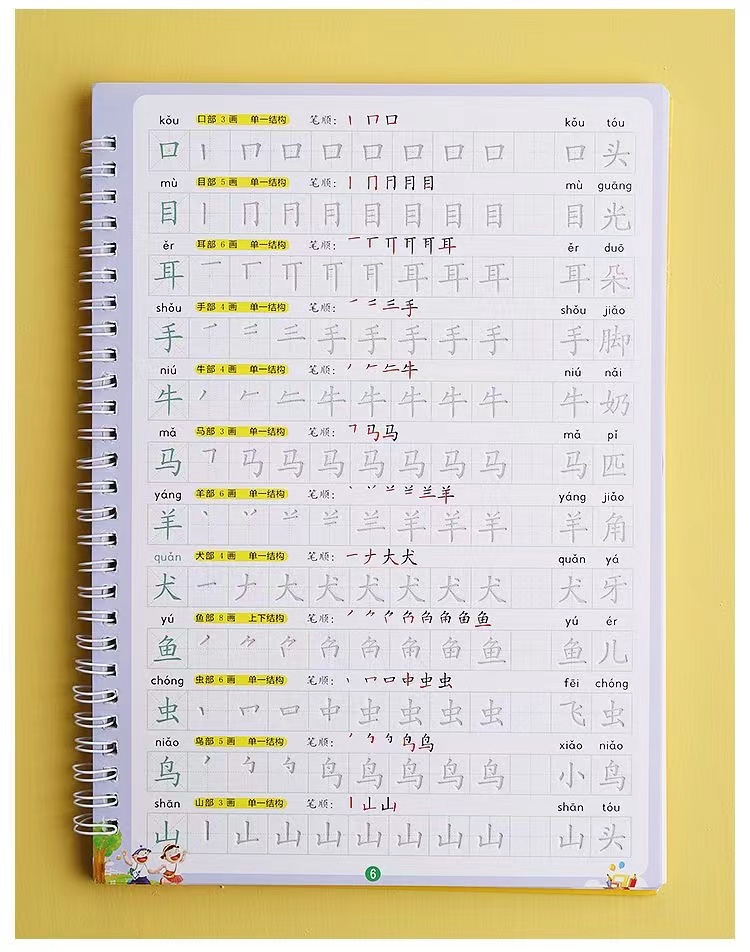 kǒu 口部 3 画 单一结构 笔顺: 丨 冂 口 kǒu tóu
口 丨 冂 口 口 口 口 口 口 口 头
mù 目部 5 画 单一结构 笔顺: 丨 冂 月 目 mù guāng
目 丨 冂 月 目 目 目 目 目 光
ěr 耳部 6 画 单一结构 笔顺: 一 丅 耳 ěr duǒ
耳 一 丅 耳 耳 耳 耳 朵
shǒu 手部 4 画 单一结构 笔顺: 手 shǒu jiǎo
手 三 手 手 手 手 手 手 脚
niú 牛部 4 画 单一结构 笔顺: 丿 𠂉 牛 niú nǎi
牛 丿 𠂉 牛 牛 牛 牛 牛 牛 奶
mǎ 马部 3 画 单一结构 笔顺: 马 mǎ pǐ
马 马 马 马 马 马 马 马 匹
yáng 羊部 6 画 单一结构 笔顺: 丶 丷 羊 yáng jiǎo
羊 丶 丷 羊 羊 羊 羊 角
quǎn 犬部 4 画 单一结构 笔顺: 一 ナ 大 犬 quǎn yá
犬 一 ナ 大 犬 犬 犬 犬 犬 犬 牙
yú 鱼部 8 画 上下结构 笔顺: 丿 ⺈ 鱼 yú ér
鱼 丿 ⺈ 鱼 鱼 儿
chóng 虫部 6 画 单一结构 笔顺: 丨 冂 口 中 虫 虫 fēi chóng
虫 丨 冂 口 中 虫 虫 虫 虫 飞 虫
niǎo 鸟部 5 画 单一结构 笔顺: 丿 勹 鸟 xiǎo niǎo
鸟 丿 勹 鸟 鸟 鸟 鸟 小 鸟
shān 山部 3 画 单一结构 笔顺: 丨 山 山 shān tóu
山 丨 山 山 山 山 山 山 山 头
6